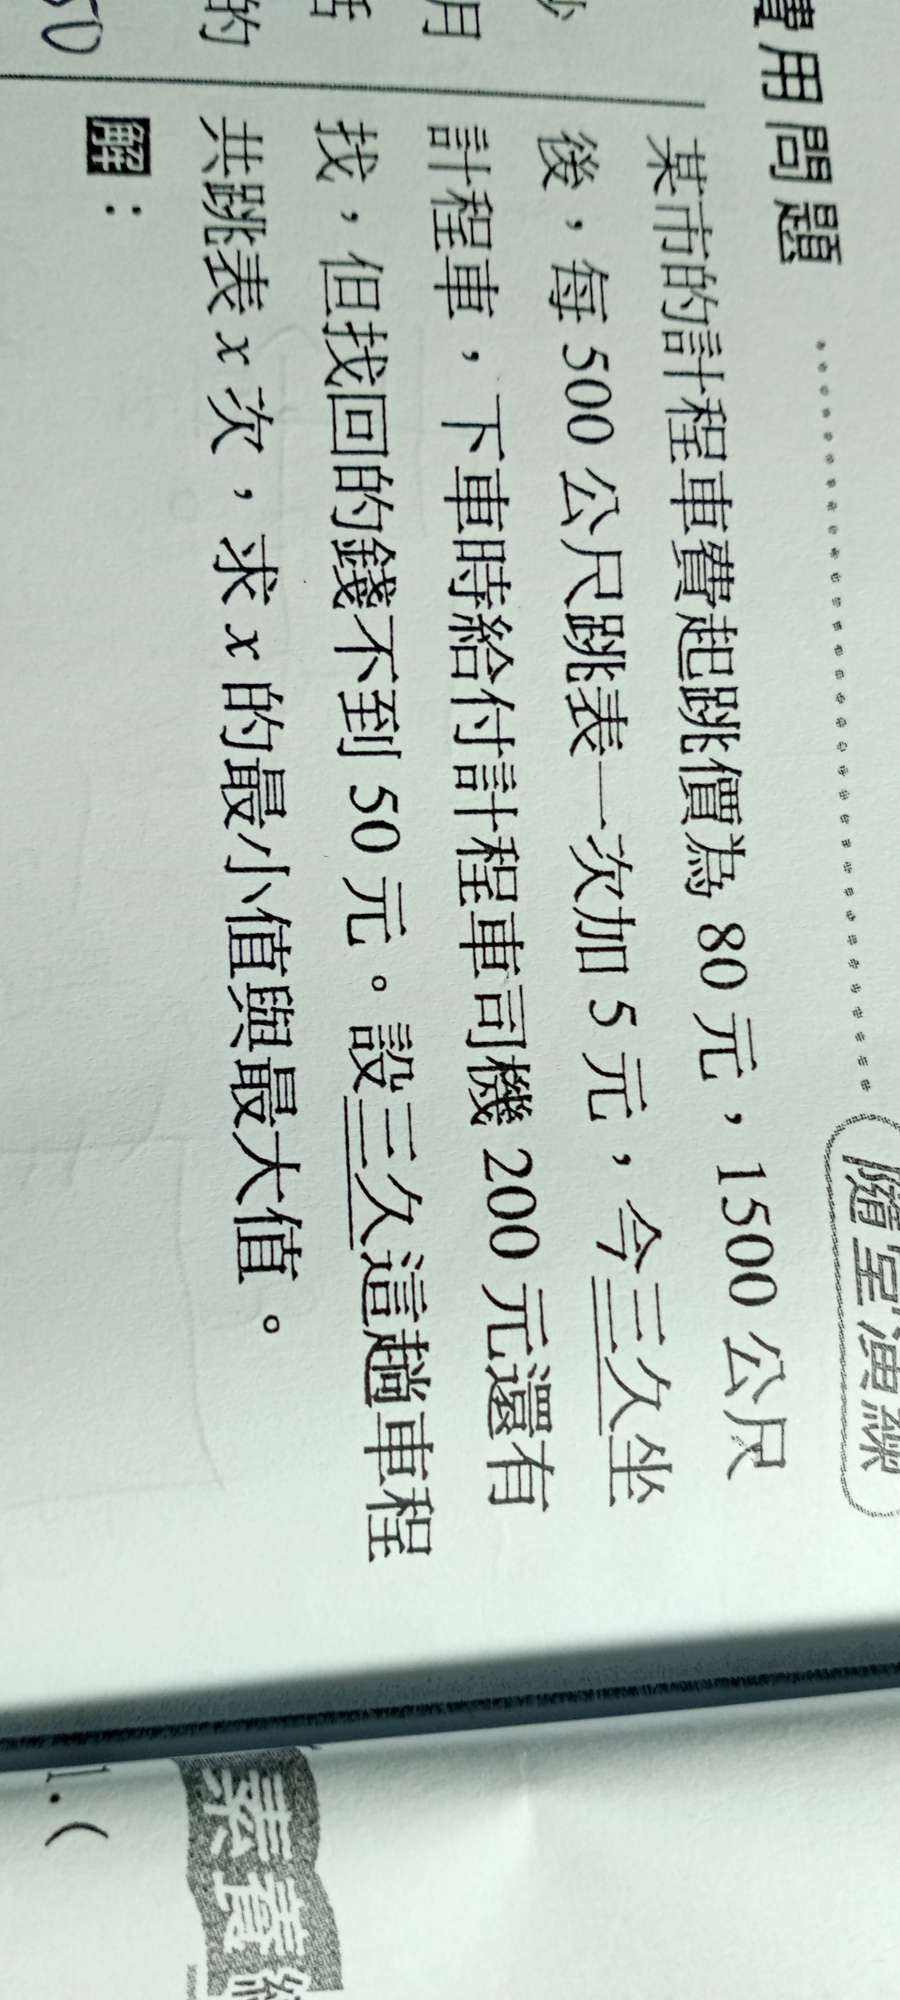 費用問題
隨堂演練
某市的計程車費起跳價為 80 元，1500 公尺
後，每 500 公尺跳表一次加 5 元，今三久坐
計程車，下車時給付計程車司機 200 元還有
找，但找回的錢不到 50 元。設三久這趟車程
共跳表 x 次，求 x 的最小值與最大值。
解：
月
的
50
素養
1.（